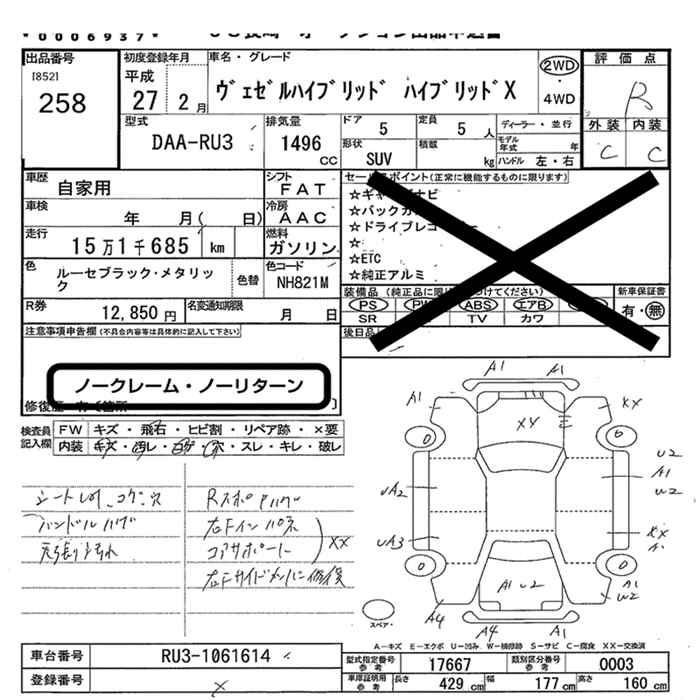 *0006937*
出品番号
[852]
258
初度登録年月
平成
27 2月
車名・グレード
ヴェゼルハイブリッド ハイブリッドX
2WD
4WD
評価点
R
外装 内装
C C
型式
DAA-RU3
排気量
1496
CC
ドア
5
定員
5人
形状
SUV
積載
kg
ディーラー・並行
モデル年式 年
ハンドル 左・右
車歴
自家用
シフト
FAT
車検
年 月( 日)
冷房
AAC
走行
15万1千685 km
燃料
ガソリン
色
ルーセブラック・メタリック
色替
色コード
NH821M
R券
12,850円
名変通知期限
月 日
セールスポイント(正常に機能するものに限ります)
☆ナビ
☆バックカ
☆ドライブレコ
☆
☆ETC
☆純正アルミ
装備品(純正品に限り けてください)
PS PW ABS エアB
SR TV カワ
新車保証書
有・無
後日品
注意事項申告欄(不具合内容等は具体的に記入して下さい)
ノークレーム・ノーリターン
修復歴
検査員記入欄
FW キズ・飛石・ヒビ割・リペア跡・×要
内装 キズ・汚レ・穴・スレ・キレ・破レ
ハンドル
天張り汚れ
左Fイン パネ
コアサポート
XX
左Fサイドメンバー修復
A1 A1
A1 XX
XY
U2
A1
UA2 U2
XX
UA3
A1 U2
A1
U2
A4
A4 A1
スペア
A-キズ E-エクボ U-凹み W-補修跡 S-サビ C-腐食 XX-交換済
車台番号
RU3-1061614
登録番号
型式指定番号 参考
17667
類別区分番号 参考
0003
車庫証明用 参考
長さ 429cm 幅 177cm 高さ 160cm